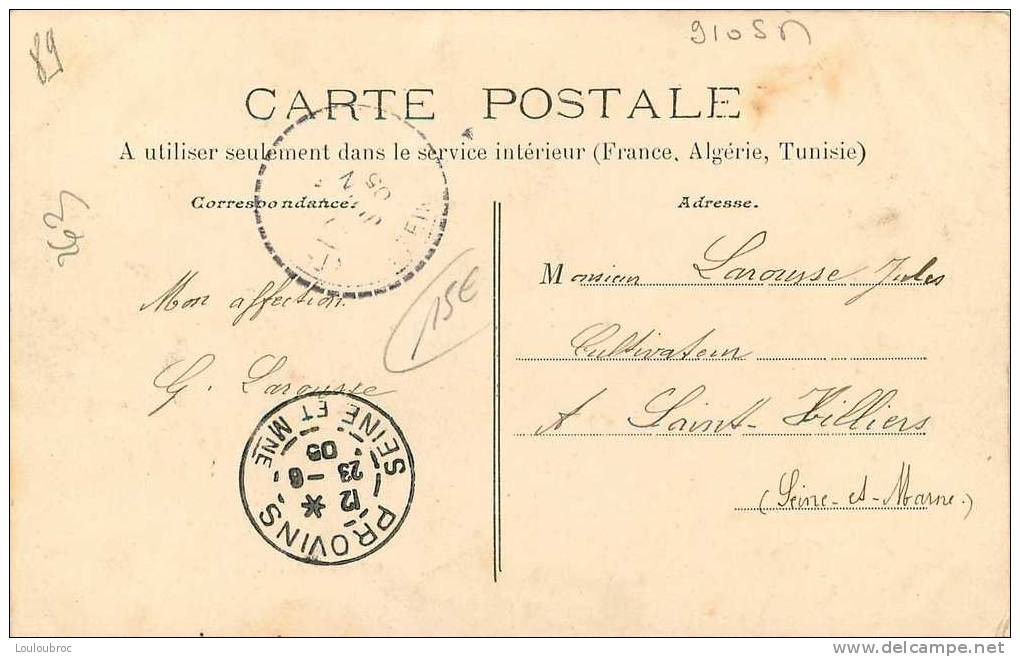 89
CARTE POSTALE
A utiliser seulement dans le service intérieur (France, Algérie, Tunisie)
Correspondance.
Adresse.
Mon affection.
G. Larousse
15€
Monsieur Larousse Jules
Cultivateur
A Saint-Hilliers
(Seine-et-Marne.)
PROVINS
12 *
23 -6
05
SEINE ET MNE
05
Louloubroc
www.delcampe.net